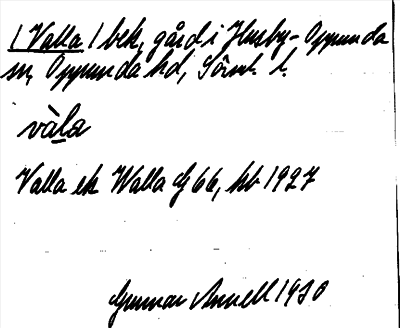 1 Valla 1 bek, gård i Husby-Oppunda
sn, Oppunda hd, Söml. l.
vàla
Valla ek Walla G 66, hb 1927
Gunnar Annell 1930